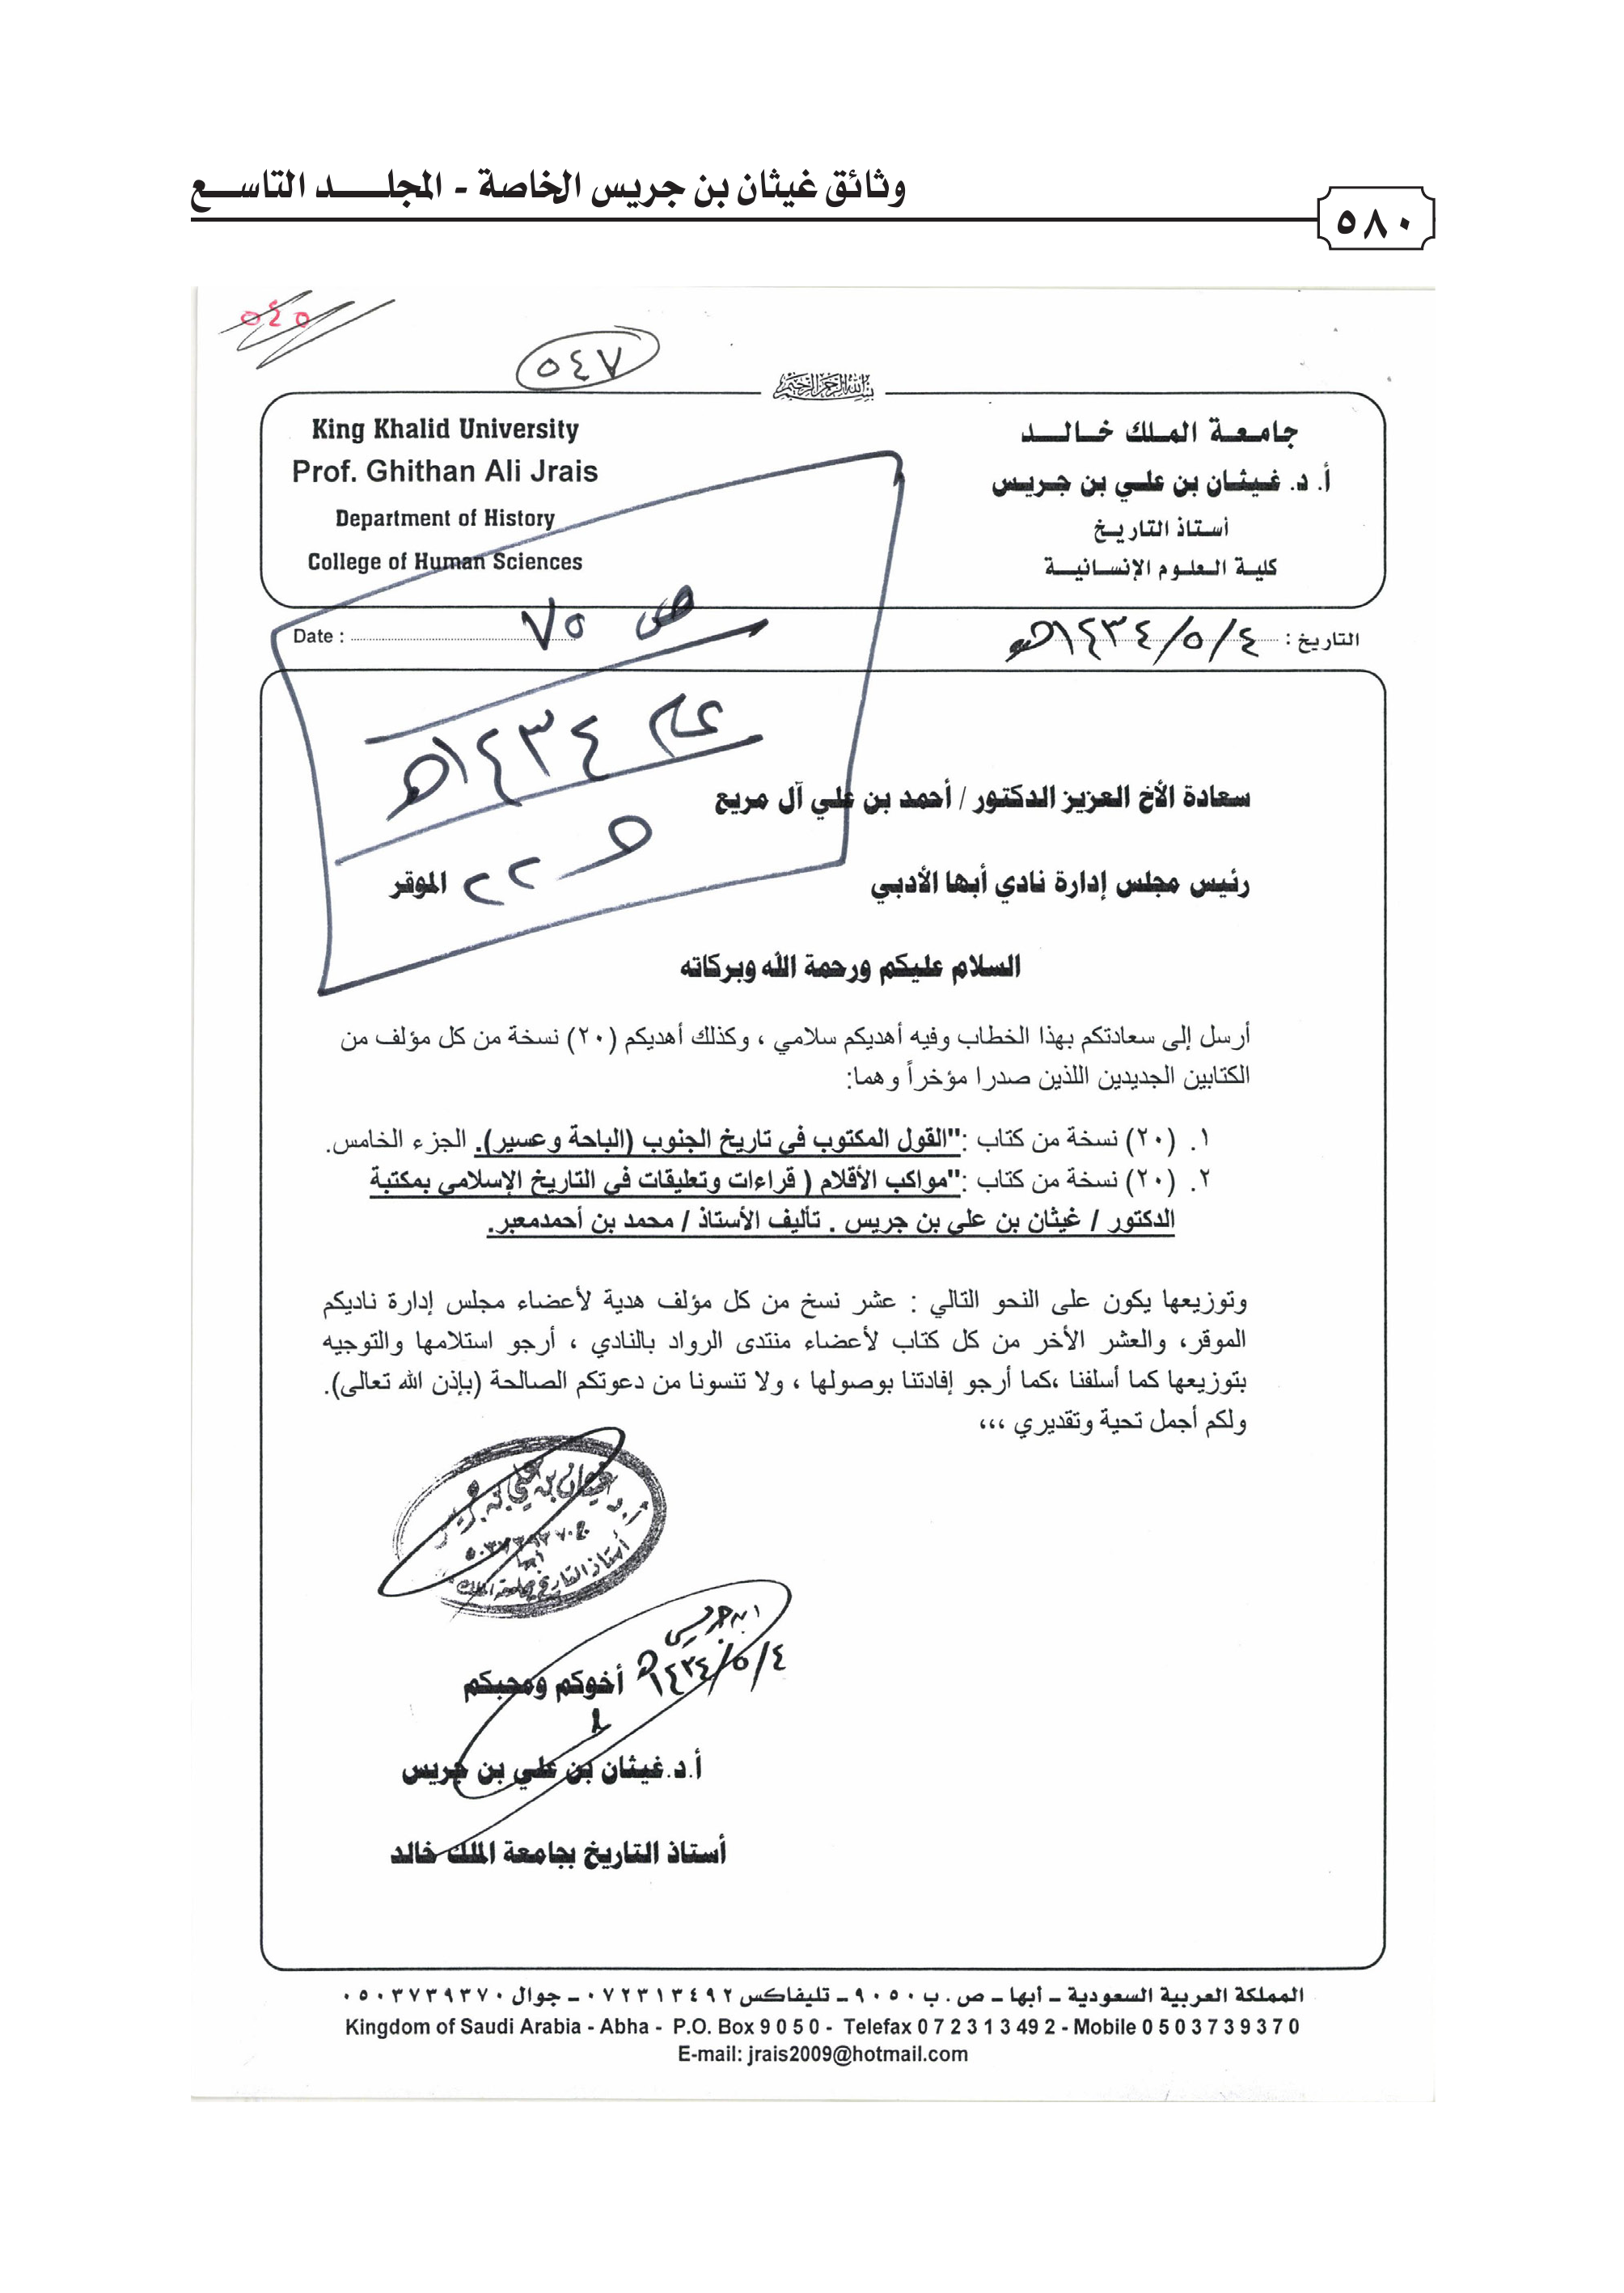 وثائق غيثان بن جريس الخاصة - المجلد التاسع
٥٨٠
٥٤٥
٥٤٧
بسم الله الرحمن الرحيم
جامعة الملك خالد
أ. د. غيثان بن علي بن جريس
أستاذ التاريخ
كلية العلوم الإنسانية
King Khalid University
Prof. Ghithan Ali Jrais
Department of History
College of Human Sciences
التاريخ : ٤/٥/١٤٣٤هـ
Date :
ص ٧٥
عام ١٤٣٤هـ
سعادة الأخ العزيز الدكتور / أحمد بن علي آل مريع
رئيس مجلس إدارة نادي أبها الأدبي الموقر
السلام عليكم ورحمة الله وبركاته
أرسل إلى سعادتكم بهذا الخطاب وفيه أهديكم سلامي ، وكذلك أهديكم (٢٠) نسخة من كل مؤلف من
الكتابين الجديدين اللذين صدرا مؤخراً وهما:
١. (٢٠) نسخة من كتاب :"القول المكتوب في تاريخ الجنوب (الباحة وعسير). الجزء الخامس.
٢. (٢٠) نسخة من كتاب :"مواكب الأقلام ( قراءات وتعليقات في التاريخ الإسلامي بمكتبة
الدكتور / غيثان بن علي بن جريس . تأليف الأستاذ / محمد بن أحمدمعبر.
وتوزيعها يكون على النحو التالي : عشر نسخ من كل مؤلف هدية لأعضاء مجلس إدارة ناديكم
الموقر، والعشر الأخر من كل كتاب لأعضاء منتدى الرواد بالنادي ، أرجو استلامها والتوجيه
بتوزيعها كما أسلفنا ،كما أرجو إفادتنا بوصولها ، ولا تنسونا من دعوتكم الصالحة (بإذن الله تعالى).
ولكم أجمل تحية وتقديري ،،،
ابن جريس
٤/٥/١٤٣٤هـ
أخوكم ومحبكم
أ.د.غيثان بن علي بن جريس
أستاذ التاريخ بجامعة الملك خالد
المملكة العربية السعودية ـ أبها ـ ص . ب ٩٠٥٠ ـ تليفاكس ٠٧٢٣١٣٤٩٢ ـ جوال ٠٥٠٣٧٣٩٣٧٠
Kingdom of Saudi Arabia - Abha - P.O. Box 9 0 5 0 - Telefax 0 7 2 3 1 3 49 2 - Mobile 0 5 0 3 7 3 9 3 7 0
E-mail: jrais2009@hotmail.com